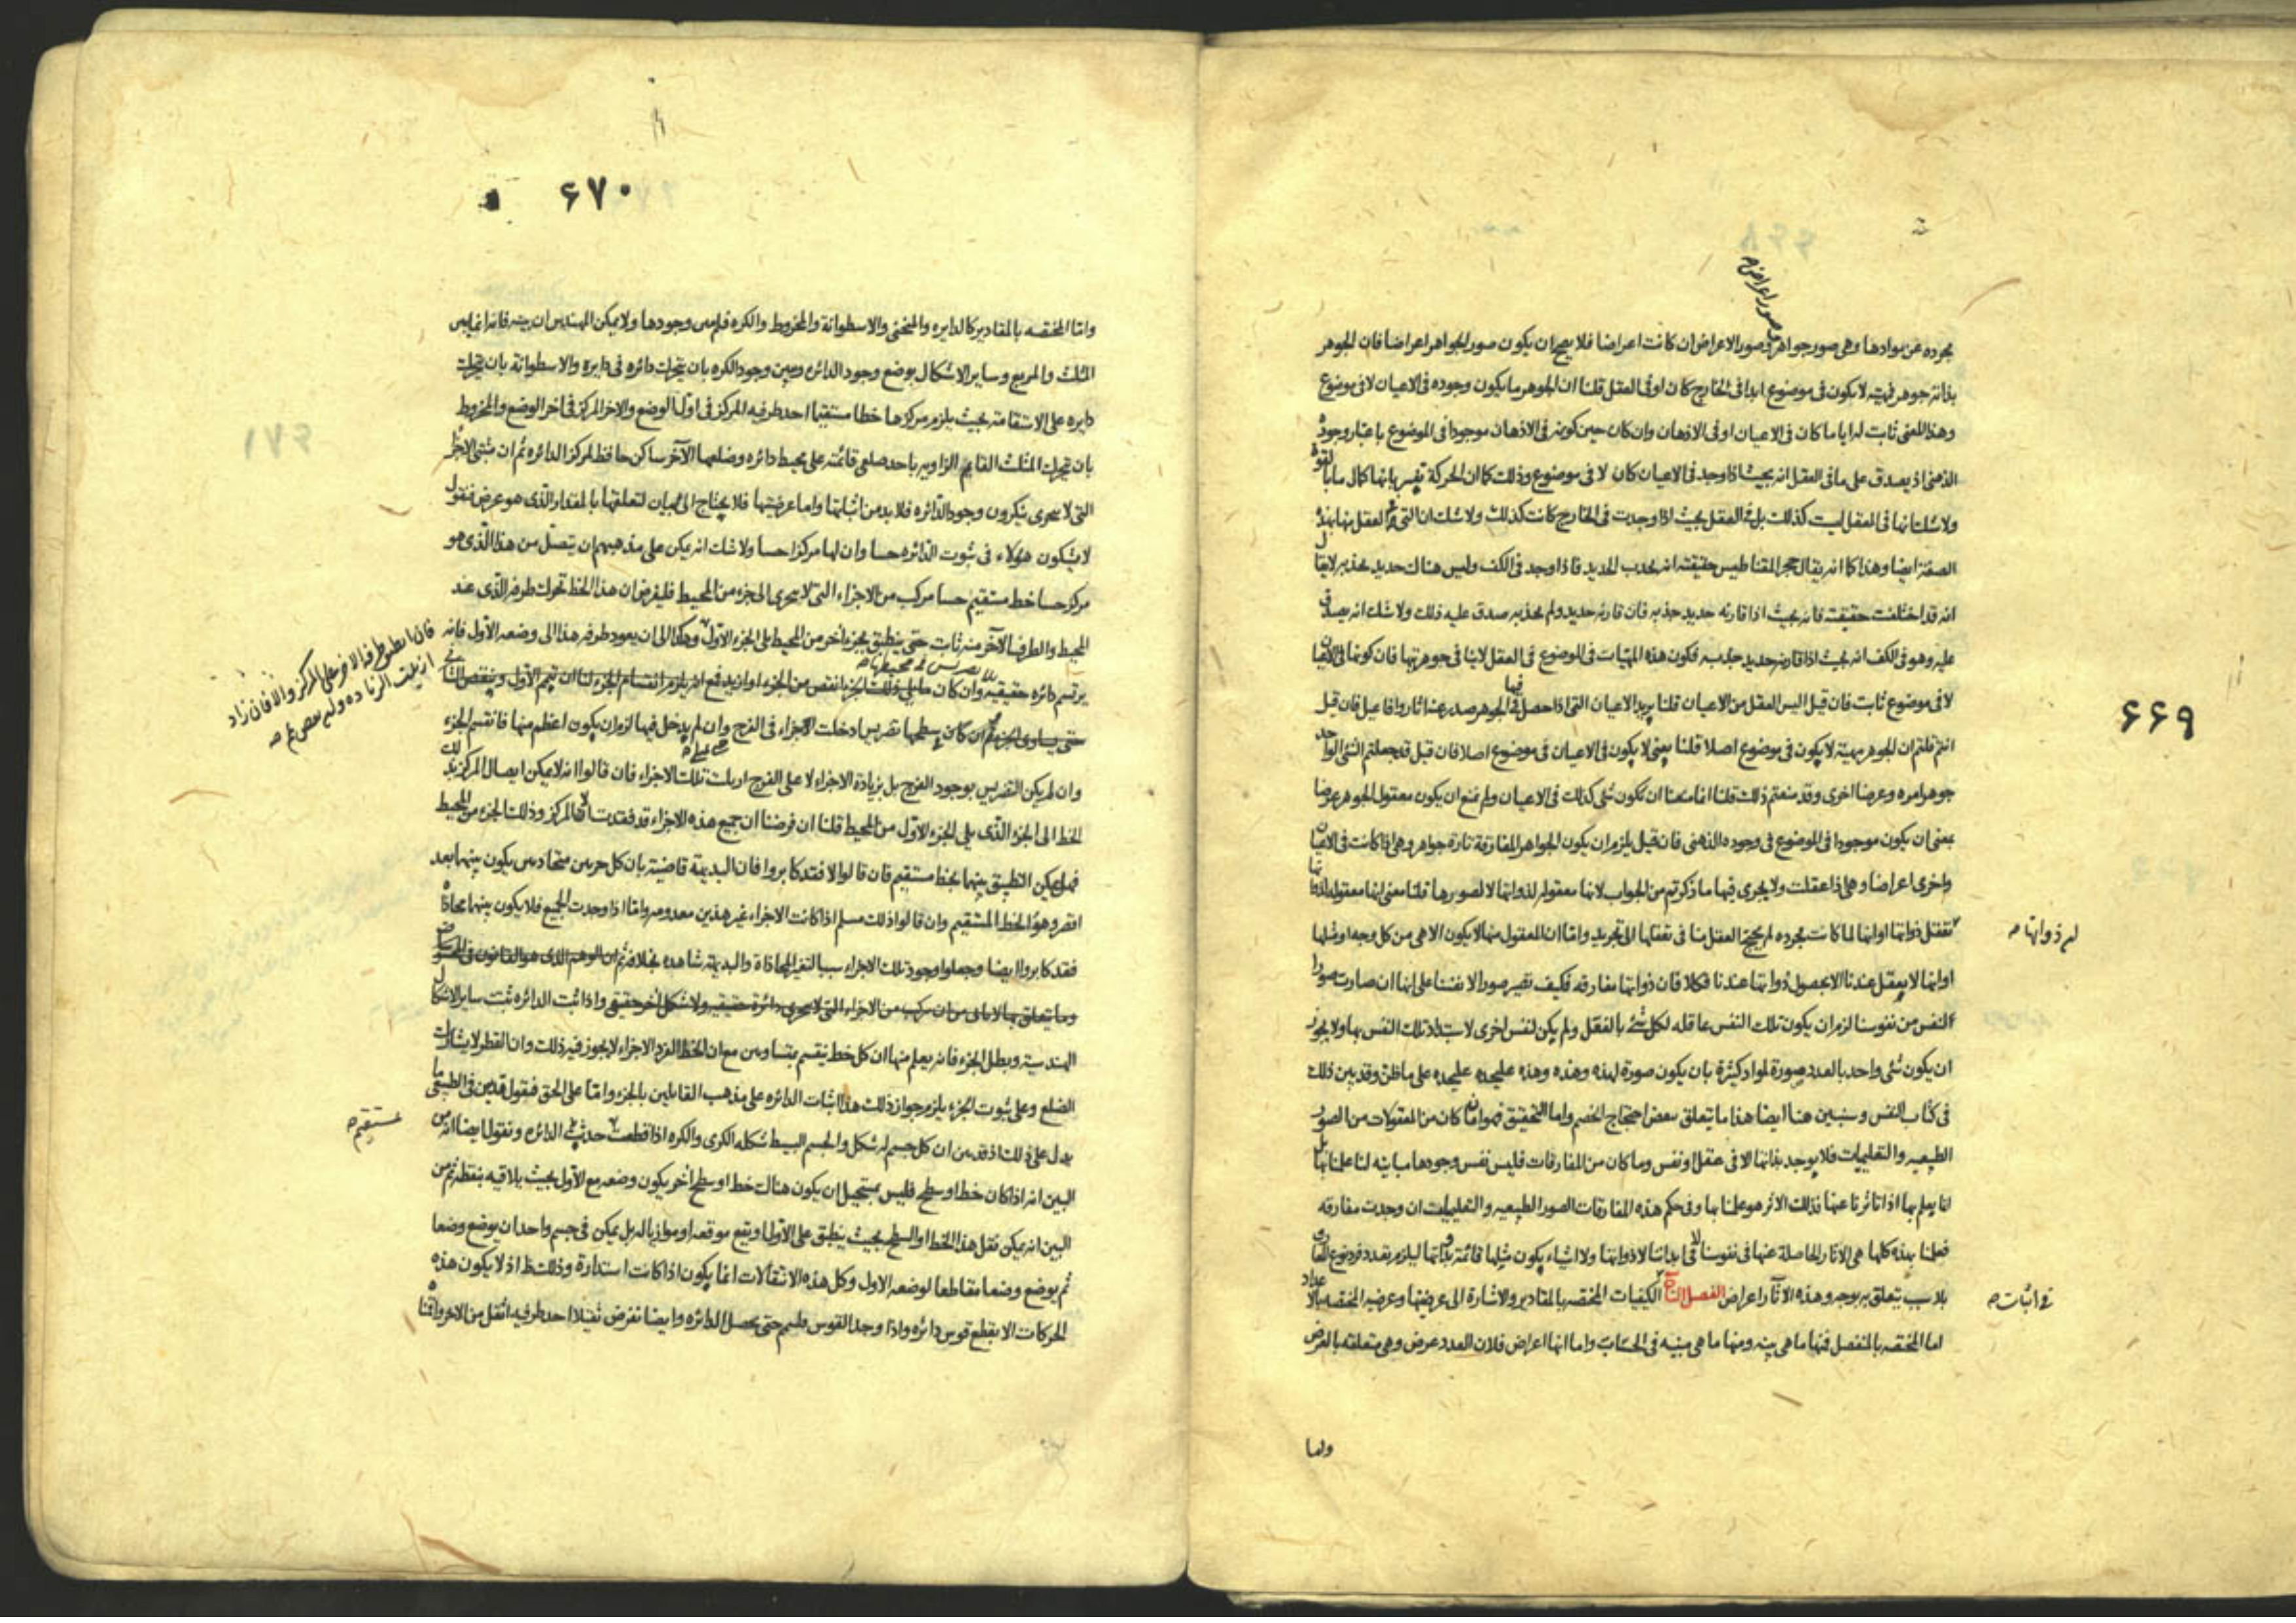 ۶۶۹
وصور اعراض
مجرده عن موادها وهى صور جواهر صور الاعراض ان كانت اعراضا فلا يصح ان يكون صور الجواهر اعراضا فان الجوهر
بذاته جوهر فمهيته لا يكون فى موضوع ابدا فى الخارج كان او فى العقل قلنا ان الجوهر ما يكون وجوده فى الاعيان لا فى موضوع
وهذا المعنى ثابت لها دايما ما كان فى الاعيان او فى الاذهان وان كان حين كونه فى الاذهان موجودا فى الموضوع باعتبار وجوده
الذهنى اذ يصدق على ما فى العقل انه بحيث اذا وجد فى الاعيان كان لا فى موضوع وذلك كما ان الحركة تفسر بانها كمال ما بالقوه
ولا شك انها فى العقل ليست كذلك بل فى العقل بحيث اذا وجدت فى الخارج كانت كذلك ولا شك ان التى فى العقل منها بهذه
الصفة ايضا وهذا كما انه يقال حجر المقناطيس حقيقته انه يجذب الحديد فاذا وجد فى الكف وليس هناك حديد يجذبه لا يقال
انه قد اختلفت حقيقته فانه بحيث اذا قارنه حديد جذبه فان قارنه حديد ولم يجذبه صدق عليه ذلك ولا شك انه يصدق
عليه وهو فى الكف انه بحيث اذا قارنه حديد جذبه فكون هذه المهيات فى الموضوع فى العقل لا ينافى جوهريتها فان كونها فى الاعيان
لا فى موضوع ثابت فان قيل اليس العقل من الاعيان قلنا يريد الاعيان التى اذا حصل فيها الجوهر صدر عنه اثار وافاعيل فان قيل
انتم قلتم ان الجوهر مهيته لا يكون فى موضوع اصلا قلنا يعنى لا يكون فى الاعيان فى موضوع اصلا فان قيل قد جعلتم الشئ الواحد
جوهرا مره وعرضا اخرى وقد منعتم ذلك قلنا انما منعنا ان تكون شئ كذلك فى الاعيان ولم نمنع ان يكون معقول الجوهر عرضا
بمعنى ان يكون موجودا فى الموضوع فى وجوده الذهنى فان قيل يلزم ان يكون الجواهر المفارقة تارة جواهر وهى اذا كانت فى الاعيان
واخرى اعراضا وهى اذا عقلت ولا يجرى فيها ما ذكرتم من الجواب لانها معقوله لذواتها لا لصورها قلنا معنى انها معقوله لذواتها
تعقل ذواتها او انها لما كانت مجرده لم يحتج العقل منا فى تعقلها الى تجريد واما ان المعقول منها لا يكون الا هى من كل وجه او مثلها
لم ذواتها
او انها لا يعقل عندنا الا بحصول ذواتها عندنا فكلا فان ذواتها مفارقه فكيف تصير صورا لانفسنا على انها ان صارت صورا
النفس من نفوسنا لزم ان يكون تلك النفس عاقله لكل شئ بالفعل ولم يكن لنفس اخرى لاستبداد تلك النفس بها ولا يجوز
ان يكون شئ واحد بالعدد صورة لمواد كثيرة بان يكون صورة لهذه وهذه وهذه عليحده عليحده على ما ظن وقد بين ذلك
فى كتاب النفس وسنبين هنا ايضا هذا ما يتعلق بنقض احتجاج الخصم واما التحقيق فهو ان ما كان من المعقولات من الصور
الطبيعيه والتعليميات فلا يوجد بذاتها الا فى عقل او نفس وما كان من المفارقات فليس نفس وجودها مباينه لنا علمنا بها بل
انا يعلم بها اذا تاثرنا عنها فذلك الاثر هو علمنا بها وفى حكم هذه المفارقات الصور الطبيعيه والتعليميات ان وجدت مفارقه
فعلمنا بهذه كلها هى الاثار الحاصلة عنها فى نفوسنا لا فى ابداننا لا ذواتها ولا اشياء يكون مثلها قائمة بذواتها ليلزم تعدد فرد نوع المفارق
بلا سبب يتعلق به بوجه وهذه الاثار اعراض الفصل الثامن الكيفيات المختصه بالمقادير والاشارة الى عرضيتها وعرضيه المختصه بالاعداد
فى اثبات
اما المختصه بالمنفصل فمنها ما هى بينه ومنها ما هى مبينه فى الحساب واما انها اعراض فلان العدد عرض وهى متعلقه بالعرض
واما
۶۷۰
واما المختصه بالمقادير كالدايره والمنحنى والاسطوانة والمخروط والكره فليس وجودها ولا يمكن المهندس ان يبينه فانه انما يبين
المثلث والمربع وساير الاشكال بوضع وجود الدائره ويبين وجود الكره بان يتحرك دائره فى دايره والاسطوانة بان يتحرك
دايره على الاستقامة بحيث يلزم مركزها خطا مستقيما احد طرفيه المركز فى اول الوضع والاخر المركز فى اخر الوضع والمخروط
بان يتحرك المثلث القايم الزاويه باحد ضلعى قائمته على محيط دائره وضلعها الآخر ساكن حافظ لمركز الدائره ثم ان مثبتى الاجزاء
التى لا يتجزى ينكرون وجود الدائره فلا بد من اثباتها واما عرضيتها فلا يحتاج الى بيان لتعلقها بالمقدار الذى هو عرض فنقول
لا يشكون هؤلاء فى ثبوت الدائره حسا وان لها مركزا حسا ولا شك انه يمكن على مذهبهم ان يتصل من هذا الذى هو
مركز حسا خط مستقيم حسا مركب من الاجزاء التى لا يتجزى الى جزء من المحيط فليفرض ان هذا الخط تحرك طرفه الذى عند
المحيط والطرف الآخر منه ثابت حتى ينطبق بجزء آخر من المحيط يلى الجزء الاول وهكذا الى ان يعود طرفه هذا الى وضعه الاول فانه
فان انطبق طرفه الاخر على المركز والا فان زاد
ازيلت الزياده وان نقص تمم
يرتسم دائره حقيقيه
وان لم يكن التضريس بوجود الفرج بل بزيادة الاجزاء لا على الفرج ازيلت تلك الاجزاء فان قالوا انه لا يمكن ايصال المركز بذلك
الخط الى الجزء الذى يلى الجزء الاول من المحيط قلنا ان فرضنا ان جميع هذه الاجزاء قد فقدت الا المركز وذلك الجزء من المحيط
فهل يمكن التطبيق بينهما بخط مستقيم فان قالوا لا فقد كابروا فان البديهة قاضية بان كل جزءين متحاذيين يكون بينهما بعد
اقصر وهو الخط المستقيم وان قالوا ذلك مسلم اذا كانت الاجزاء غير هذين معدومه واما اذا وجدت الجميع فلا يكون بينهما محاذاة
فقد كابروا ايضا وجعلوا وجود تلك الاجزاء سببا لتغير المحاذاة والبديهة شاهده بخلافه
واذا ثبت الدائره ثبت ساير الاشكال
الهندسية وبطل الجزء فانه يعلم منها ان كل خط ينقسم بمتساويين مع ان الخط الفرد الاجزاء لا يجوز فيه ذلك وان القطر لا يشارك
الضلع وعلى ثبوت الجزء يلزم جواز ذلك هذا اثبات الدائره على مذهب القايلين بالجزء واما على الحق فنقول قد بين فى الطبيعى ما
يدل على ذلك اذ قد بين ان كل جسم له شكل والجسم البسيط شكله الكرى والكره اذا قطعت حدث الدائره ونقول ايضا انه من
مستقيم
البين انه اذا كان خط او سطح فليس بمستحيل ان يكون هناك خط او سطح آخر يكون وضعه مع الاول بحيث يلاقيه بنقطه ثم من
البين انه يمكن نقل هذا الخط او السطح بحيث ينطبق على الاول او يقع موقعه او موازيا له بل يمكن فى جسم واحد ان يوضع وضعا
ثم يوضع وضعا مقاطعا لوضعه الاول وكل هذه الانتقالات انما يكون اذا كانت استدارة وذلك ظ اذ لا يكون هذه
الحركات الا بقطع قوس دائره واذا وجد القوس فليتمم حتى يحصل الدائره وايضا نفرض ثقيلا احد طرفيه اثقل من الاخر واقمناه